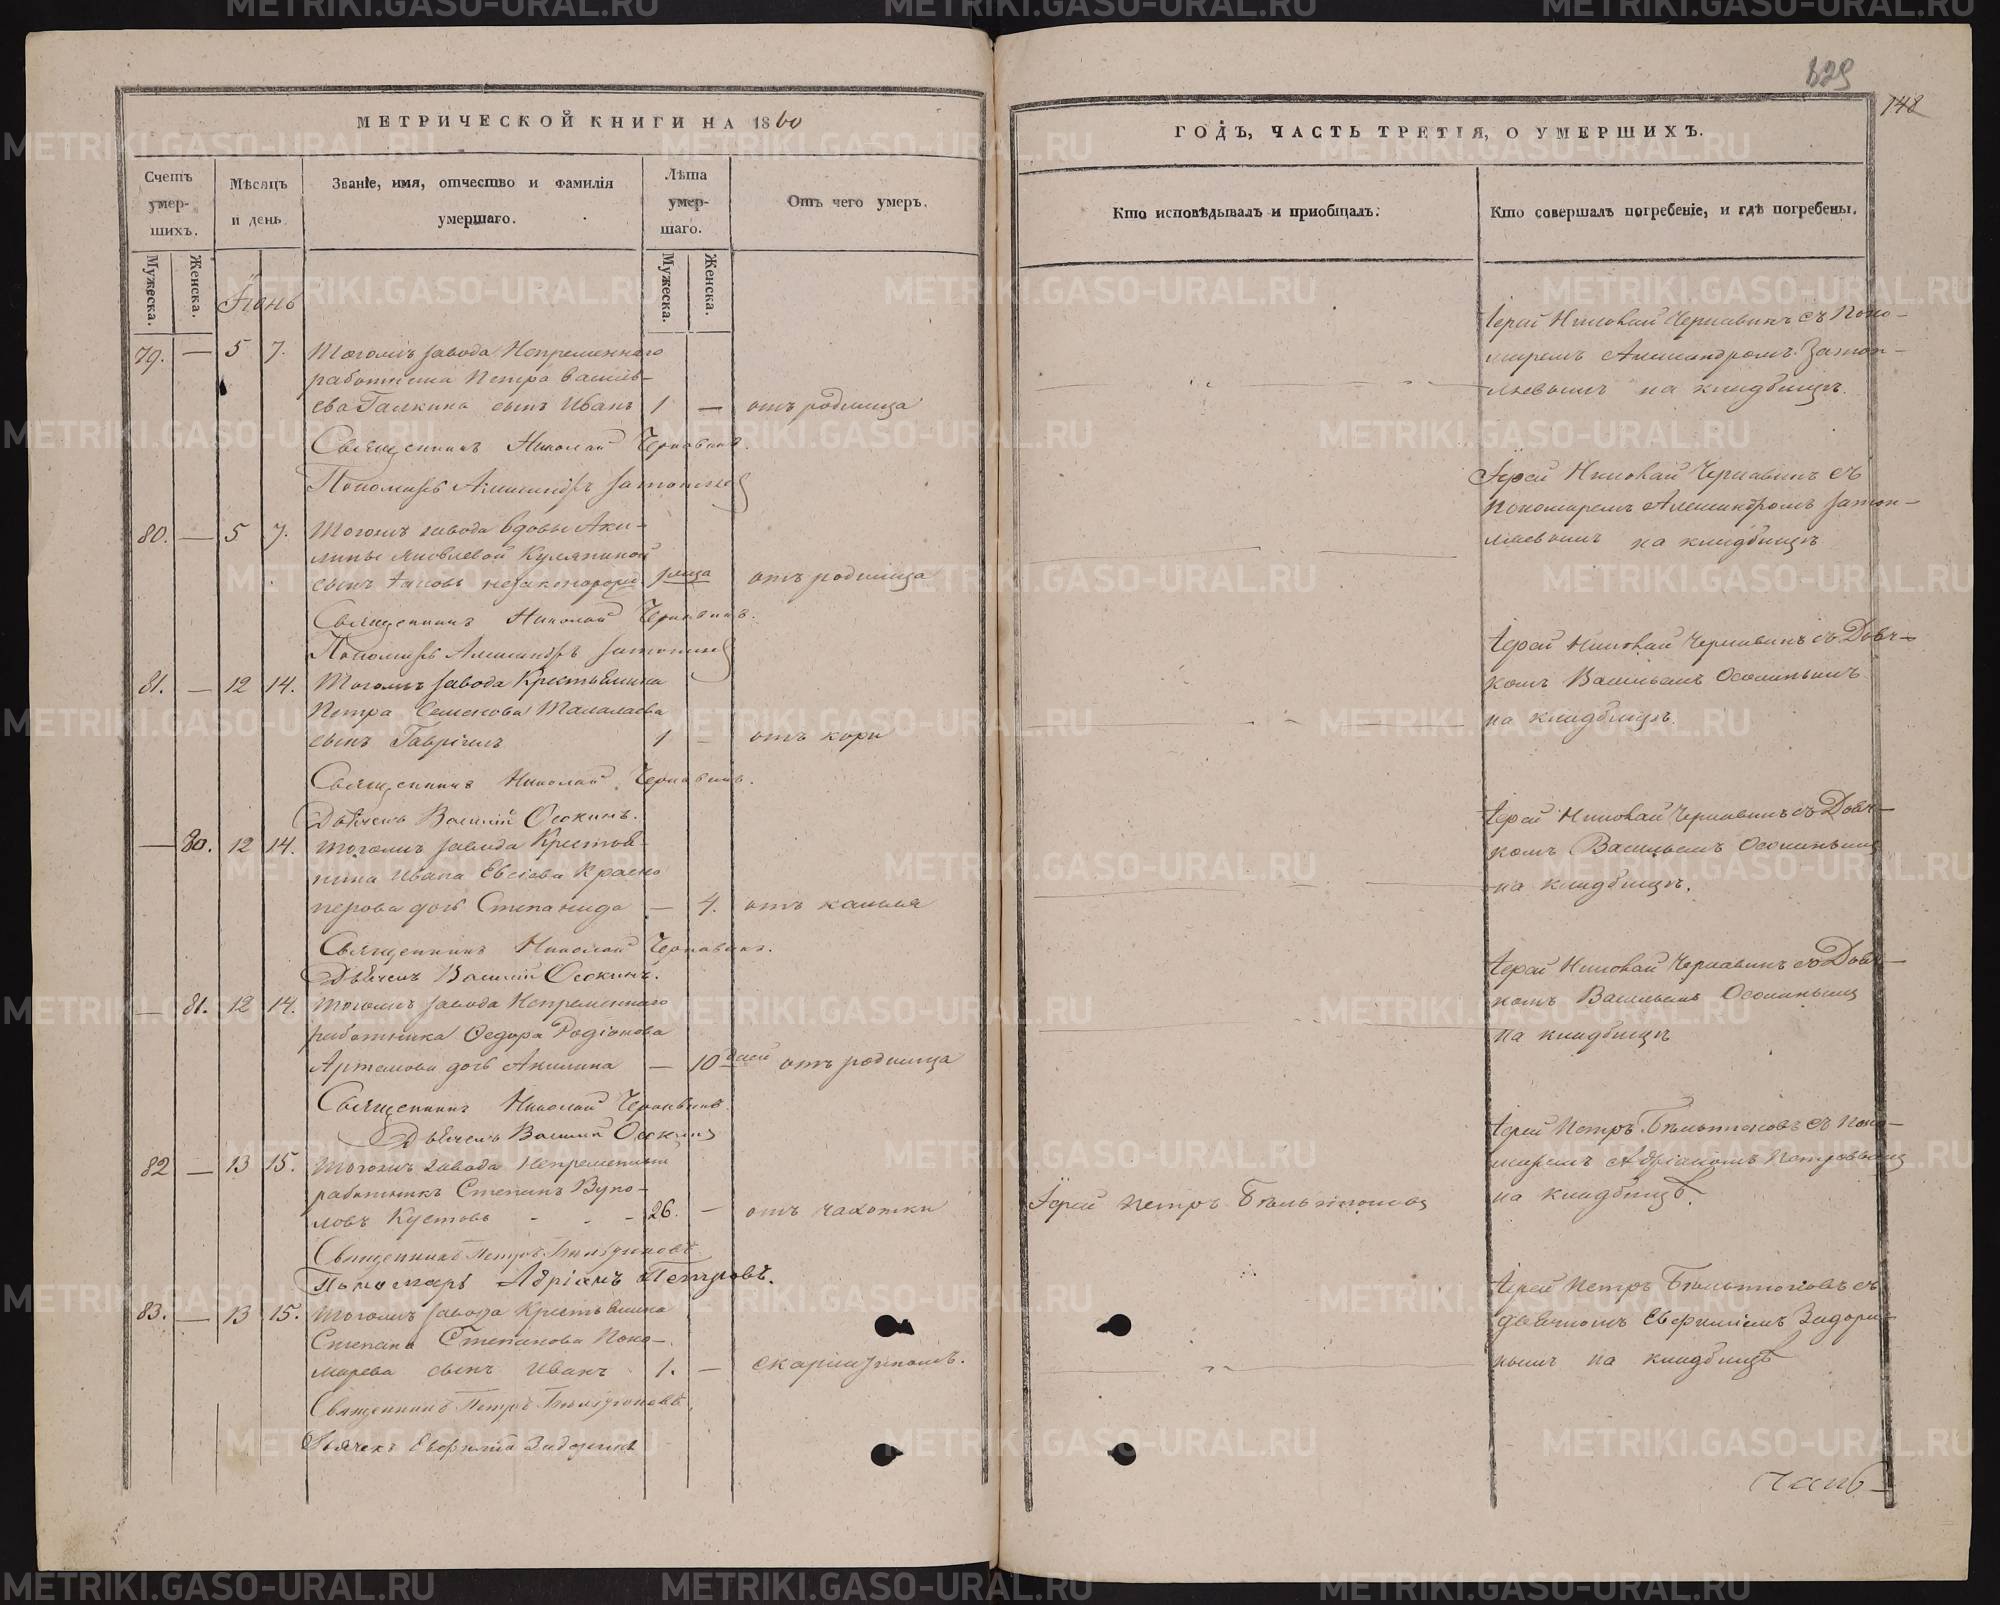 829
148
МЕТРИЧЕСКОЙ КНИГИ НА 1860
ГОДЪ, ЧАСТЬ ТРЕТІЯ, О УМЕРШИХЪ.
Счетъ умер-шихъ.
Мѣсяцъ и день
Званіе, имя, отчество и фамилія умершаго.
Лѣта умер-шаго.
Отъ чего умеръ.
Кто исповѣдывалъ и приобщалъ.
Кто совершалъ погребеніе, и гдѣ погребены.
Мужеска.
Женска.
Мужеска.
Женска.
Іюнь
79. — 5 7. Тогожъ завода Непременнаго
работника Петра Василь-
ева Галкина сынъ Иванъ 1 — отъ родимца
Священникъ Николай Чернавинъ.
Пономарь Александръ
Іерей Николай Чернавинъ съ Поно-
маремъ Александромъ
на кладбищѣ.
80. — 5 7. Тогожъ завода вдовы Аки-
лины Яковлевой
сынъ незаконорожд отъ родимца
Священникъ Николай Чернавинъ.
Пономарь Александръ
Іерей Николай Чернавинъ съ
Пономаремъ Александромъ
на кладбищѣ
81. — 12 14. Тогожъ завода Крестьянина
Петра Семенова Талалаева
сынъ Гавріилъ 1 — отъ кори
Священникъ Николай Чернавинъ.
Дьячекъ Василій Осокинъ.
Іерей Николай Чернавинъ съ Дьяч-
комъ Васильемъ Осокинымъ
на кладбищѣ.
— 80. 12 14. Тогожъ завода Крестьян-
нина Ивана Евсіева Красно
перова дочь Степанида — 4. отъ кашля
Священникъ Николай Чернавинъ.
Дьячекъ Василій Осокинъ.
Іерей Николай Чернавинъ съ Дьяч-
комъ Васильемъ Осокинымъ
на кладбищѣ.
— 81. 12 14. Тогожъ завода Непременнаго
работника Ѳедора Родіонова
Артемова дочь Акилина — 10 дней отъ родимца
Священникъ Николай Чернавинъ.
Дьячекъ Василій Осокинъ
Іерей Николай Чернавинъ съ Дьяч-
комъ Васильемъ Осокинымъ
на кладбищѣ
82 — 13 15. Тогожъ завода Непременный
работникъ Степанъ Вуко-
ловъ Кустовъ - - - 26. — отъ чахотки
Священникъ Петръ
Пономарь Адріанъ Петровъ.
Іерей Петръ
Іерей Петръ съ Поно-
маремъ Адріаномъ Петровымъ
на кладбищѣ.
83. — 13 15. Тогожъ завода Крестьянина
Степана Степанова Поно-
марева сынъ Иванъ 1. — скарлатиною.
Священникъ Петръ
Дьячекъ Евфимій Задоринъ
Іерей Петръ съ
дьячкомъ Евфиміемъ Задори-
нымъ на кладбищѣ
METRIKI.GASO-URAL.RU